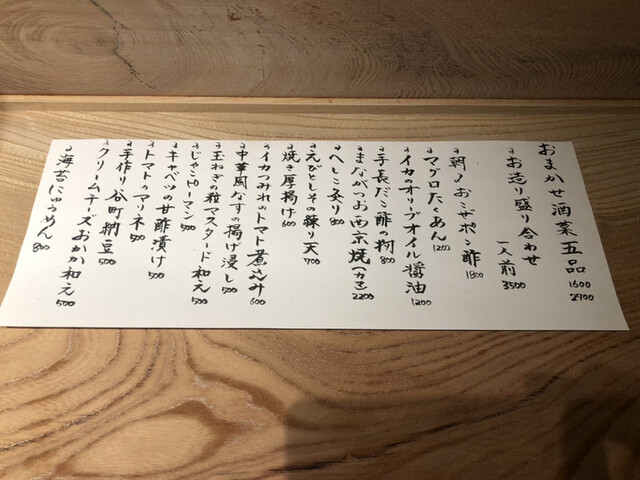 おまかせ酒菜五品 1600 2900
お造り盛り合わせ 一人前 3500
朝〆おこぜポン酢 1800
マグロたくあん 1200
イカのオリーブオイル醤油 1200
手長だこ酢の物 800
まながつお西京焼(カマ) 2200
へしこ炙り 800
えびとしその練り天 700
焼き厚揚げ 600
イカつみれのトマト煮込み 600
中華風なすの揚げ浸し 500
玉ねぎの粒マスタード和え 500
じゃこピーマン 500
キャベツの甘酢漬け 500
トマトのマリネ 500
手作り谷町納豆 500
クリームチーズおかか和え 500
海苔にゅうめん 800